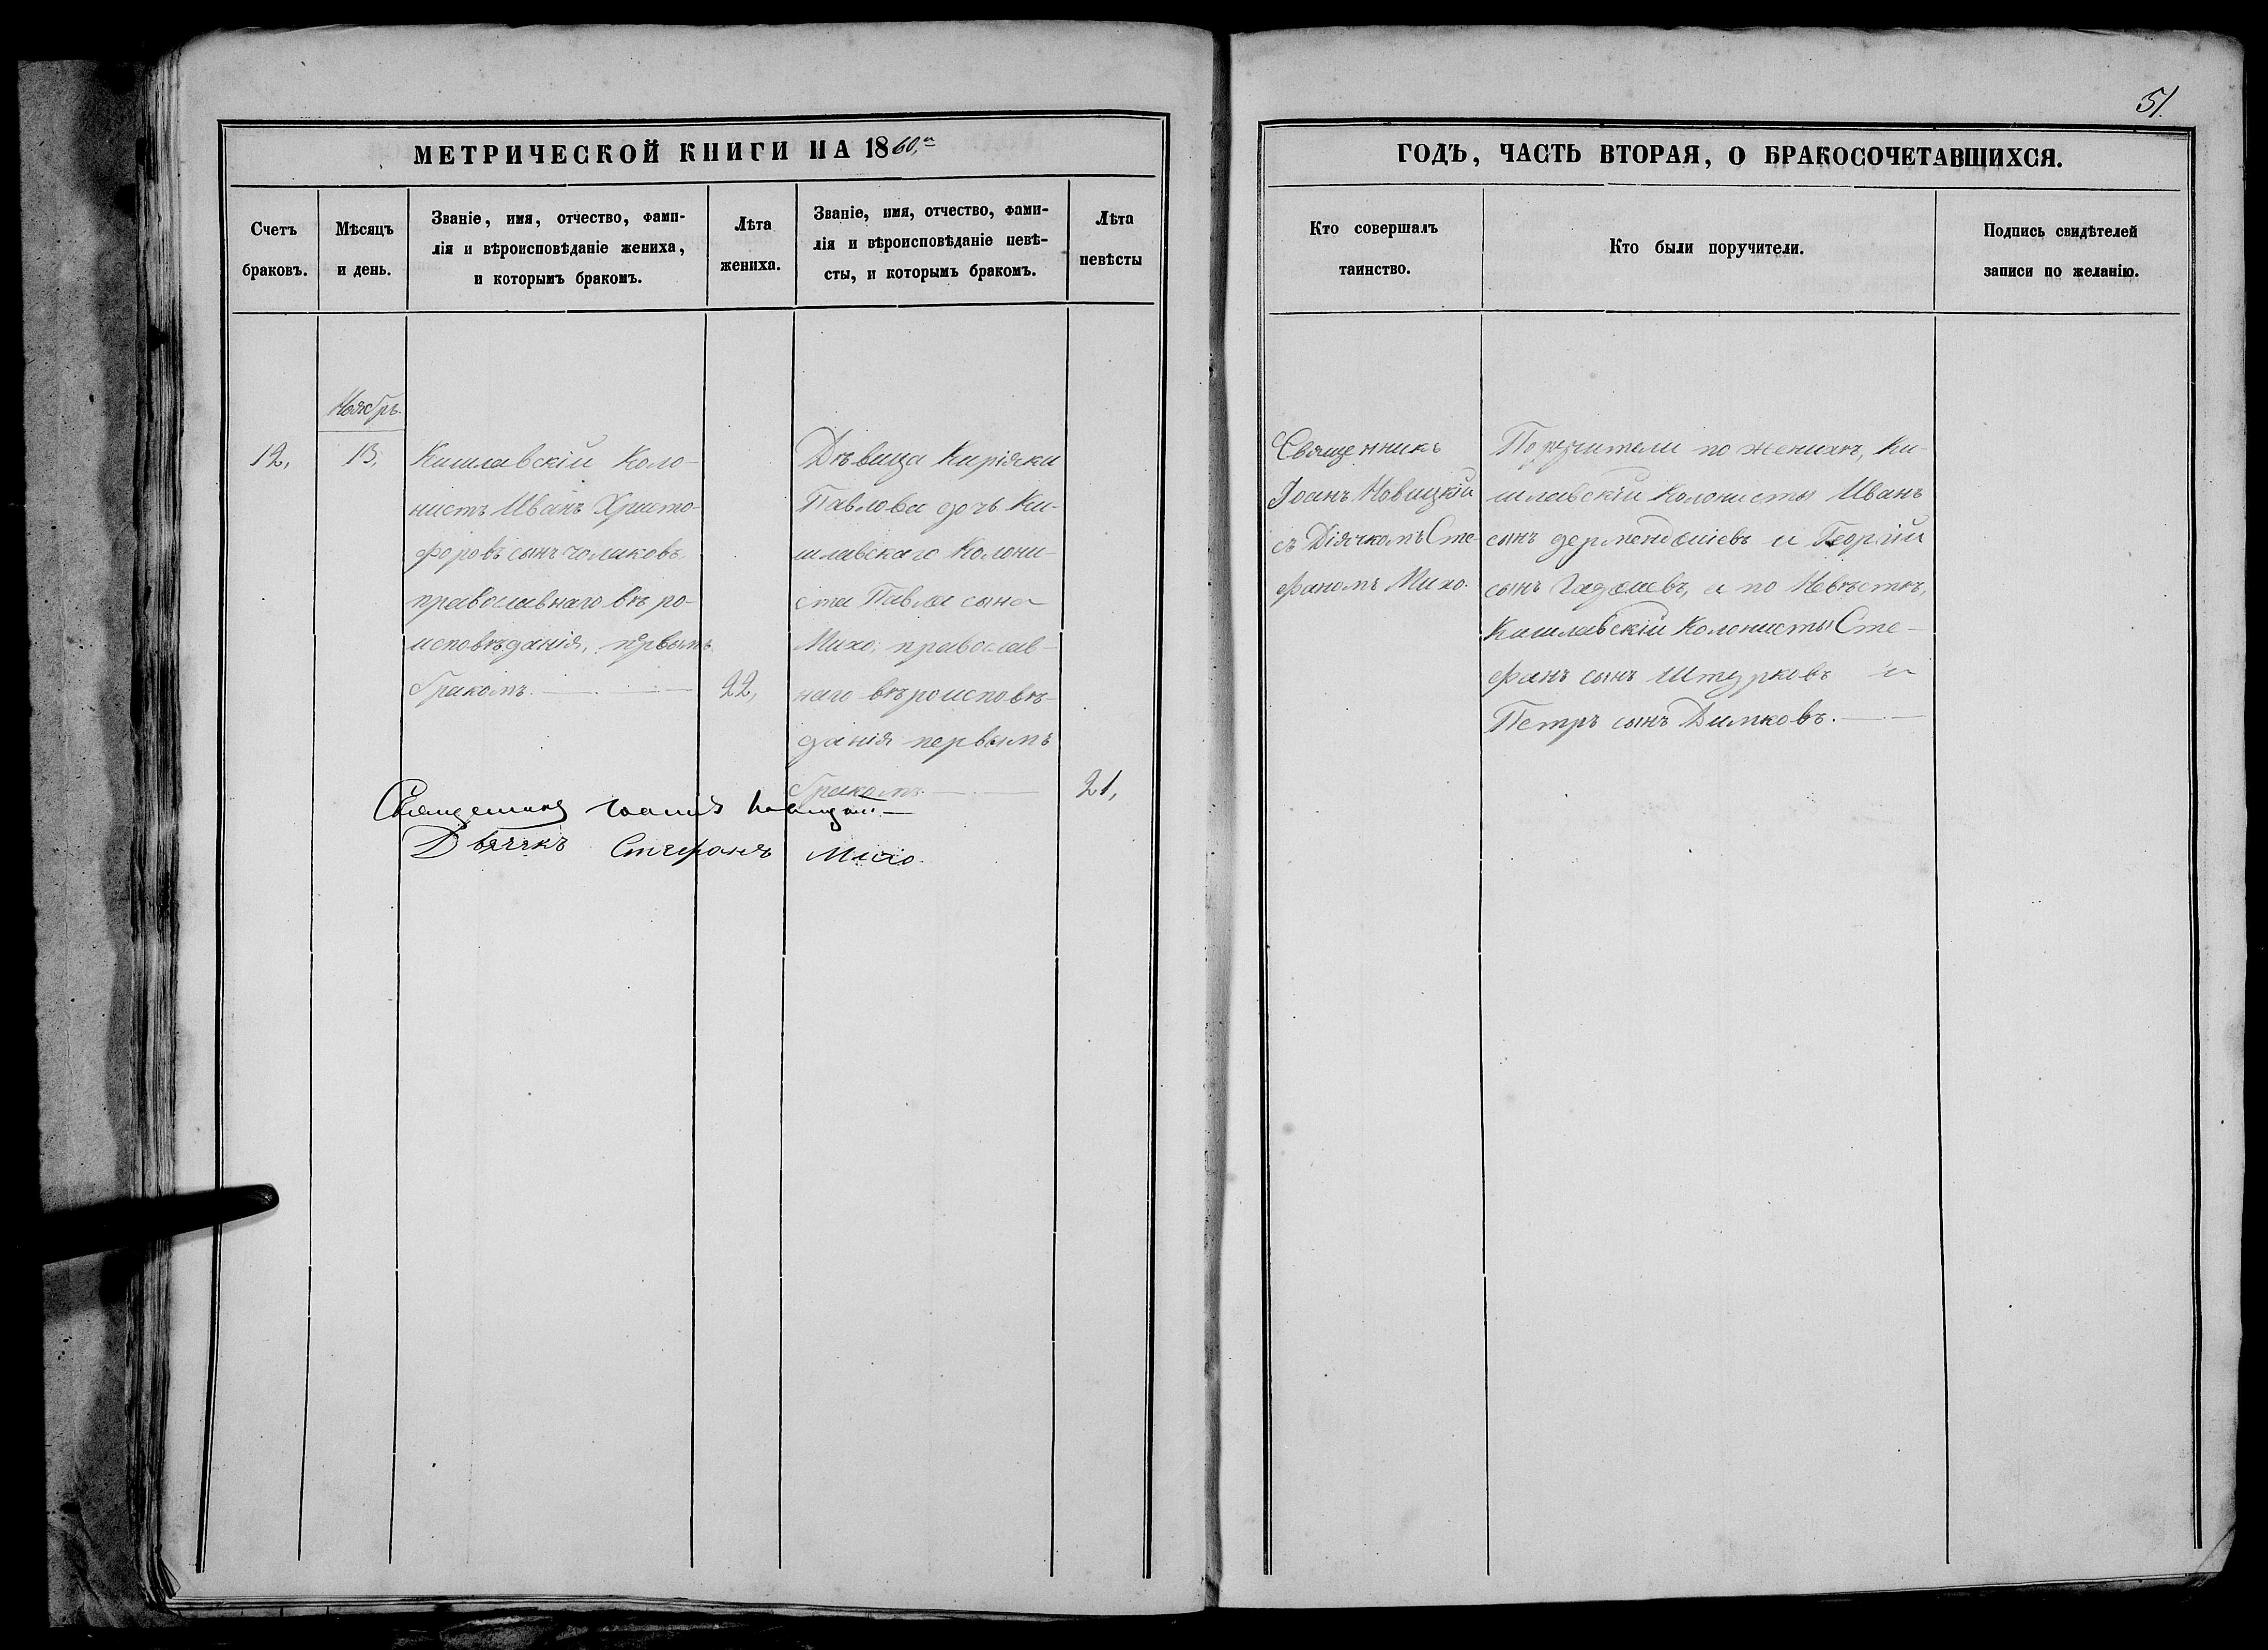 51.
МЕТРИЧЕСКОЙ КНИГИ НА 1860,го
ГОДЪ, ЧАСТЬ ВТОРАЯ, О БРАКОСОЧЕТАВШИХСЯ.
Счетъ
браковъ.
Мѣсяцъ
и день.
Званіе, имя, отчество, фами-
лія и вѣроисповѣданіе жениха,
и которымъ бракомъ.
Лѣта
жениха.
Званіе, имя, отчество, фами-
лія и вѣроисповѣданіе невѣ-
сты, и которымъ бракомъ.
Лѣта
невѣсты
Кто совершалъ
таинство.
Кто были поручители.
Подпись свидѣтелей
записи по желанію.
Ноябръ.
12,
13,
Кишлавскій Коло-
нистъ Иванъ Христо-
форовъ сынъ чолаковъ
православнаго вѣро-
исповѣданія, первымъ
бракомъ.
22,
Дѣвица Киріяки
Павлова дочь Ки-
шлавскаго Колони-
ста Павла сына
Михо, православ-
наго вѣроисповѣ-
данія первымъ
бракомъ.
21,
Священникъ
Іоанъ Новицкій
съ Діячкомъ Сте-
фаномъ Михо.
Поручители по женихѣ, Ки-
шлавскіи Колонисты Иванъ
сынъ дерменджіевъ и Георгій
сынъ Гаджіевъ, а по Невѣстѣ,
Кишлавскіи Колонисты Сте-
фанъ сынъ Штурковъ и
Петръ сынъ Димковъ.
Священникъ Іоаннъ Новицкій
Дьячкъ Стефанъ Михо.